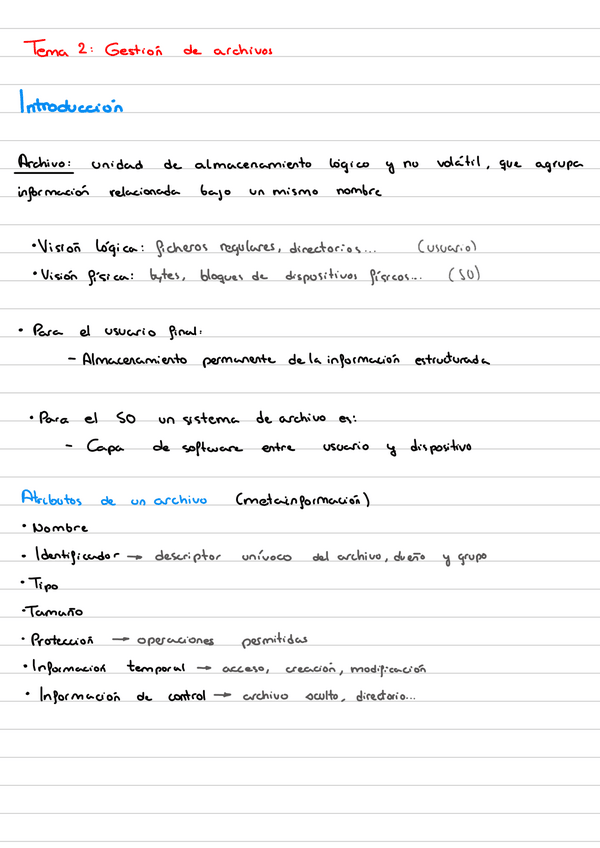 Tema 2: Gestión de archivos
Introducción
Archivo: unidad de almacenamiento lógico y no volátil, que agrupa
información relacionada bajo un mismo nombre
• Visión lógica: ficheros regulares, directorios... (usuario)
• Visión física: bytes, bloques de dispositivos físicos... (SO)
• Para el usuario final:
- Almacenamiento permanente de la información estructurada
• Para el SO un sistema de archivo es:
- Capa de software entre usuario y dispositivo
Atributos de un archivo (metainformación)
• Nombre
• Identificador → descriptor unívoco del archivo, dueño y grupo
• Tipo
• Tamaño
• Protección → operaciones permitidas
• Información temporal → acceso, creación, modificación
• Información de control → archivo oculto, directorio...